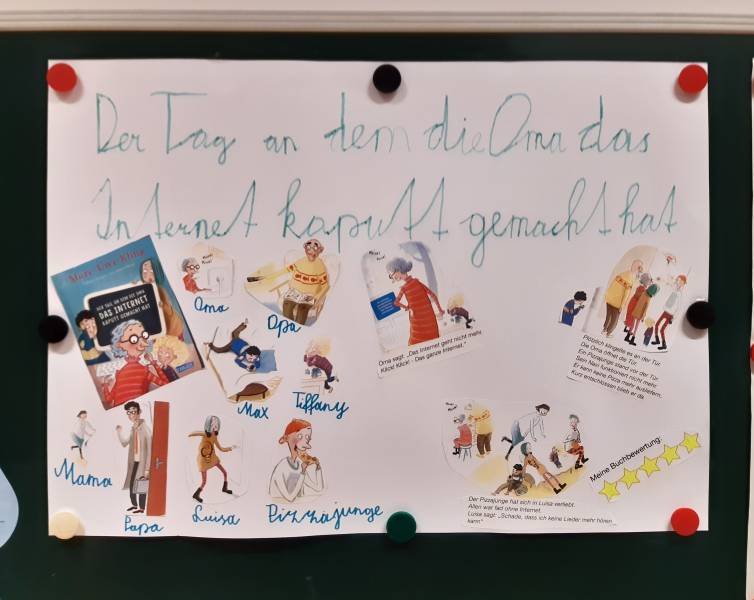 Der Tag an dem die Oma das
Internet kaputt gemacht hat
Marc-Uwe Kling
DER TAG, AN DEM DIE OMA
DAS INTERNET
KAPUTT GEMACHT HAT
Oma
Opa
Max
Tiffany
Mama
Papa
Luisa
Pizzajunge
Oma sagt: „Das Internet geht nicht mehr.
Klick! Klick! - Das ganze Internet."
Plötzlich klingelte es an der Tür.
Die Oma öffnet die Tür.
Ein Pizzajunge stand vor der Tür.
Sein Navi funktioniert nicht mehr.
Er kann keine Pizza mehr ausliefern.
Kurz entschlossen blieb er da.
Der Pizzajunge hat sich in Luisa verliebt.
Allen war fad ohne Internet.
Luisa sagt: „Schade, dass ich keine Lieder mehr hören
kann"
Meine Buchbewertung: